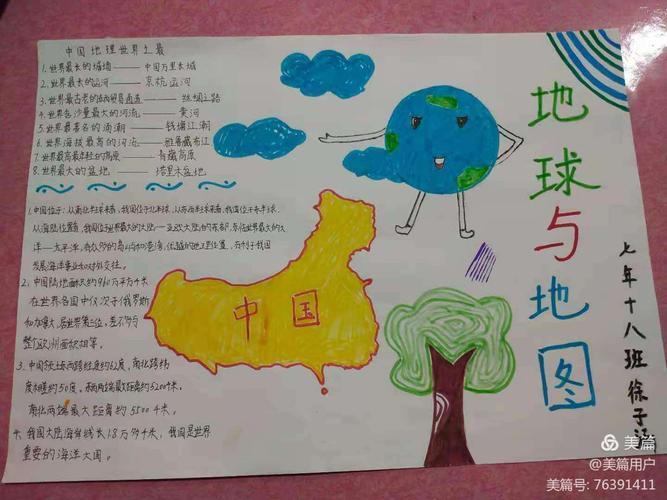 中国地理世界之最
1.世界最长的城墙——中国万里长城
2.世界最长的运河——京杭运河
3.世界最古老的东西贸易通道——丝绸之路
4.世界含沙量最大的河流——黄河
5.世界最著名的涌潮——钱塘江潮
6.世界海拔最高的河流——雅鲁藏布江
7.世界最高最年轻的高原——青藏高原
8.世界最大的盆地——塔里木盆地
1.中国位于:从南北半球来看,我国位于北半球,从东西半球来看,我国位于东半球。
从海陆位置看,我国位于世界最大的大陆—亚欧大陆的东部,东临世界最大的大
洋—太平洋,有众多的岛屿和港湾,优越的地理位置,有利于我国
发展海洋事业和对外交往。
2.中国陆地面积大约960万平方千米
在世界各国中仅次于俄罗斯
和加拿大,居世界第三位,差不多与
整个欧洲面积相等。
3.中国领土东西跨经度约62度,南北跨纬
度相差约50度,东西两端最大距离约5200千米,
南北两端最大距离约5500千米。
4.我国大陆海岸线长1.8万多千米,我国是世界
重要的海洋大国。
中国
地球与地图
七年十八班徐子
美篇
@美篇用户
美篇号: 76391411